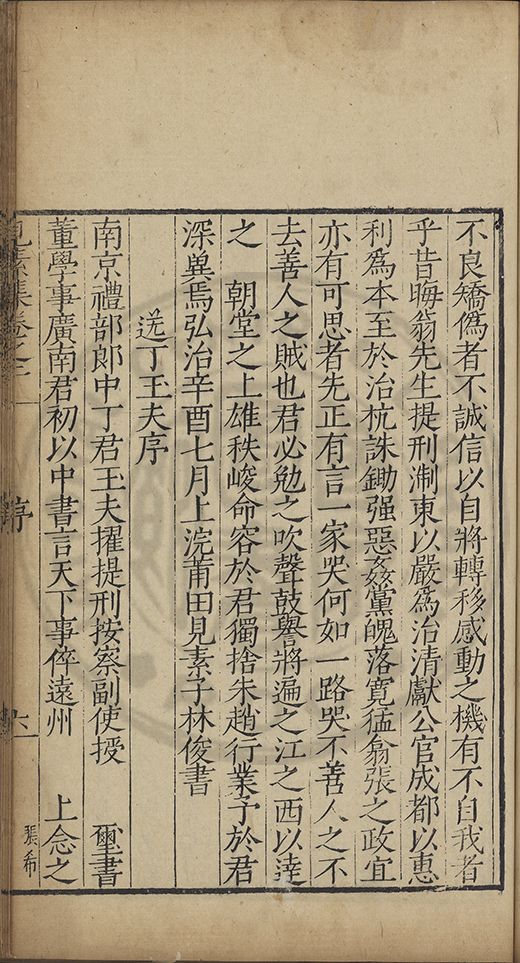 不良矯僞者不誠信以自將轉移感動之機有不自我者
乎昔晦翁先生提刑淛東以嚴爲治清獻公官成都以惠
利爲本至於治杭誅鋤强惡姦黨魄落寛猛翕張之政宜
亦有可思者先正有言一家哭何如一路哭不善人之不
去善人之賊也君必勉之吹聲鼓譽將遍之江之西以達
之　朝堂之上雄秩峻命容於君獨捨朱趙行業予於君
深兾焉弘治辛酉七月上浣莆田見素子林俊書
送丁玉夫序
南京禮部郎中丁君玉夫擢提刑按察副使授　璽書
董學事廣南君初以中書言天下事倅遠州　上念之
見素集卷之三　序　六
張希